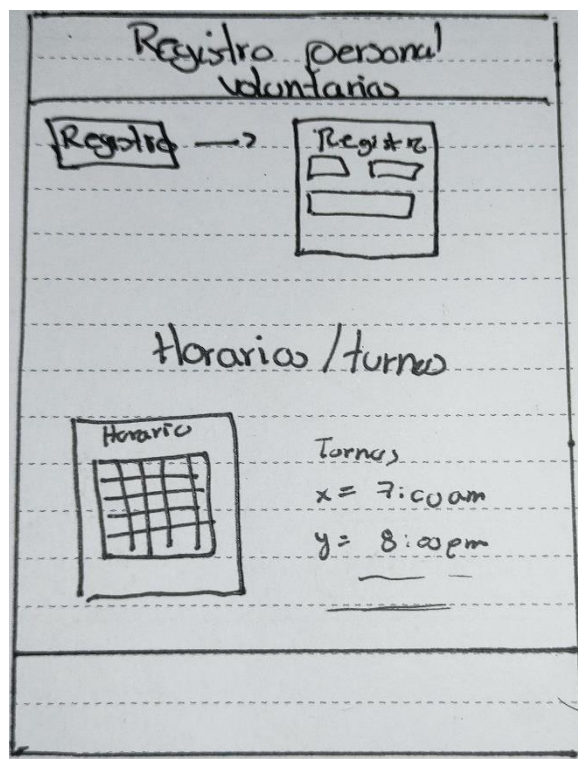 Registro personal
voluntarias
Registro
Registro
Horarios / turnos
Horario
Turnos
x = 7:00 am
y = 8:00 pm